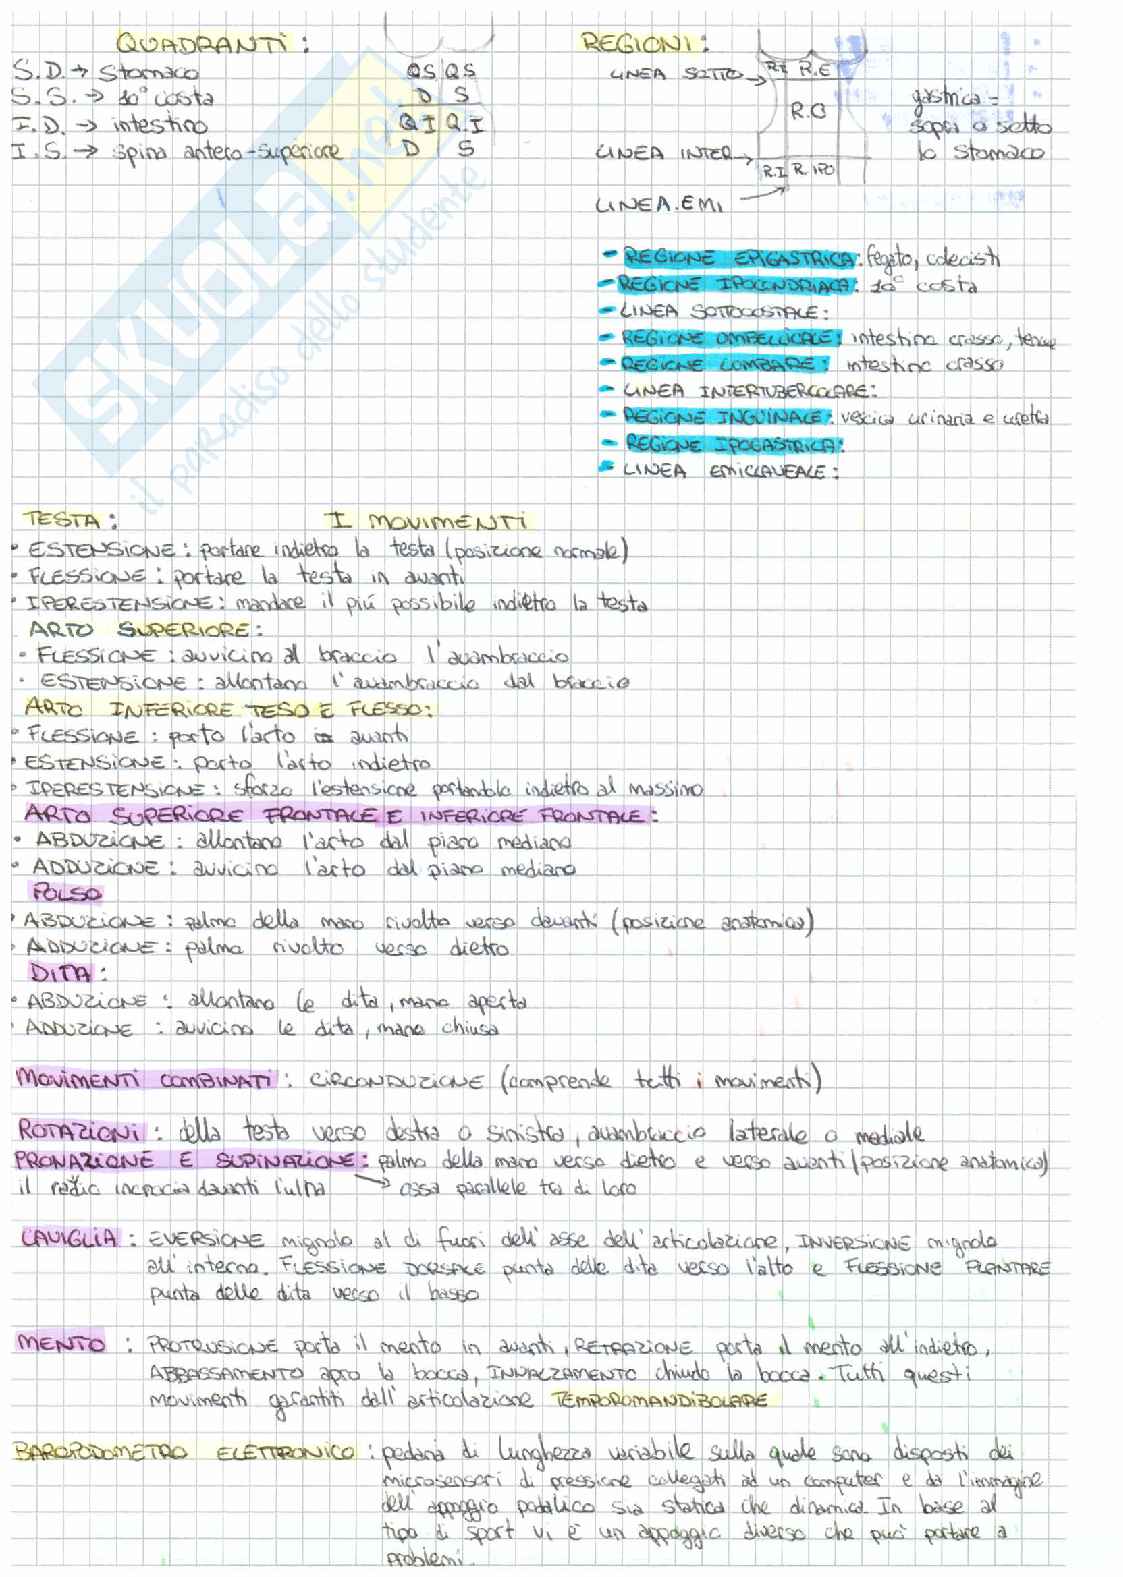 QUADRANTI:
S.D. → Stomaco
S.S. → 10° costa
I.D. → intestino
I.S. → spina antero-superiore
QS QS
D S
QI Q.I
D S
REGIONI:
LINEA SOTTO →
LINEA INTER →
LINEA.EMI
R.I R.E
R.O
R.I R. IPO
gastrica =
sopra o sotto
lo stomaco
- REGIONE EPIGASTRICA: fegato, colecisti
- REGIONE IPOCONDRIACA: 10° costa
- LINEA SOTTOCOSTALE:
- REGIONE OMBELLICALE: intestino crasso, tenue
- REGIONE LOMBARE: intestino crasso
- LINEA INTERTUBERCOLARE:
- REGIONE INGUINALE: vescica urinaria e uretra
- REGIONE IPOGASTRICA:
- LINEA EMICLAVEALE:
SKUOLA.net
il paradiso dello studente
TESTA: I MOVIMENTI
• ESTENSIONE: portare indietro la testa (posizione normale)
• FLESSIONE: portare la testa in avanti
• IPERESTENSIONE: mandare il piú possibile indietro la testa
ARTO SUPERIORE:
• FLESSIONE: avvicino al braccio l'avambraccio
• ESTENSIONE: allontano l'avambraccio dal braccio
ARTO INFERIORE TESO E FLESSO:
• FLESSIONE: porto l'arto in avanti
• ESTENSIONE: porto l'arto indietro
• IPERESTENSIONE: sforzo l'estensione portandola indietro al massimo
ARTO SUPERIORE FRONTALE E INFERIORE FRONTALE:
• ABDUZIONE: allontano l'arto dal piano mediano
• ADDUZIONE: avvicino l'arto dal piano mediano
POLSO
• ABDUZIONE: palmo della mano rivolto verso davanti (posizione anatomica)
• ADDUZIONE: palmo rivolto verso dietro
DITA:
• ABDUZIONE: allontano le dita, mano aperta
• ADDUZIONE: avvicino le dita, mano chiusa
MOVIMENTI COMBINATI: CIRCONDUZIONE (comprende tutti i movimenti)
ROTAZIONI: della testa verso destra o sinistra, avambraccio laterale o mediale
PRONAZIONE E SUPINAZIONE: palmo della mano verso dietro e verso avanti (posizione anatomica)
il radio incrocia davanti l'ulna → ossa parallele tra di loro
CAVIGLIA: EVERSIONE mignolo al di fuori dell'asse dell'articolazione, INVERSIONE mignolo
all'interno. FLESSIONE DORSALE punta delle dita verso l'alto e FLESSIONE PLANTARE
punta delle dita verso il basso
MENTO: PROTRUSIONE porta il mento in avanti, RETRAZIONE porta il mento all'indietro,
ABBASSAMENTO apro la bocca, INNALZAMENTO chiudo la bocca. Tutti questi
movimenti garantiti dall'articolazione TEMPOROMANDIBOLARE
BAROPODOMETRO ELETTRONICO: pedana di lunghezza variabile sulla quale sono disposti dei
microsensori di pressione collegati ad un computer e dà l'immagine
dell'appoggio podalico sia statica che dinamica. In base al
tipo di sport vi è un appoggio diverso che può portare a
problemi.